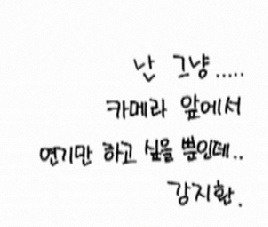 난 그냥.....
카메라 앞에서
연기만 하고 싶을 뿐인데..
강지환.